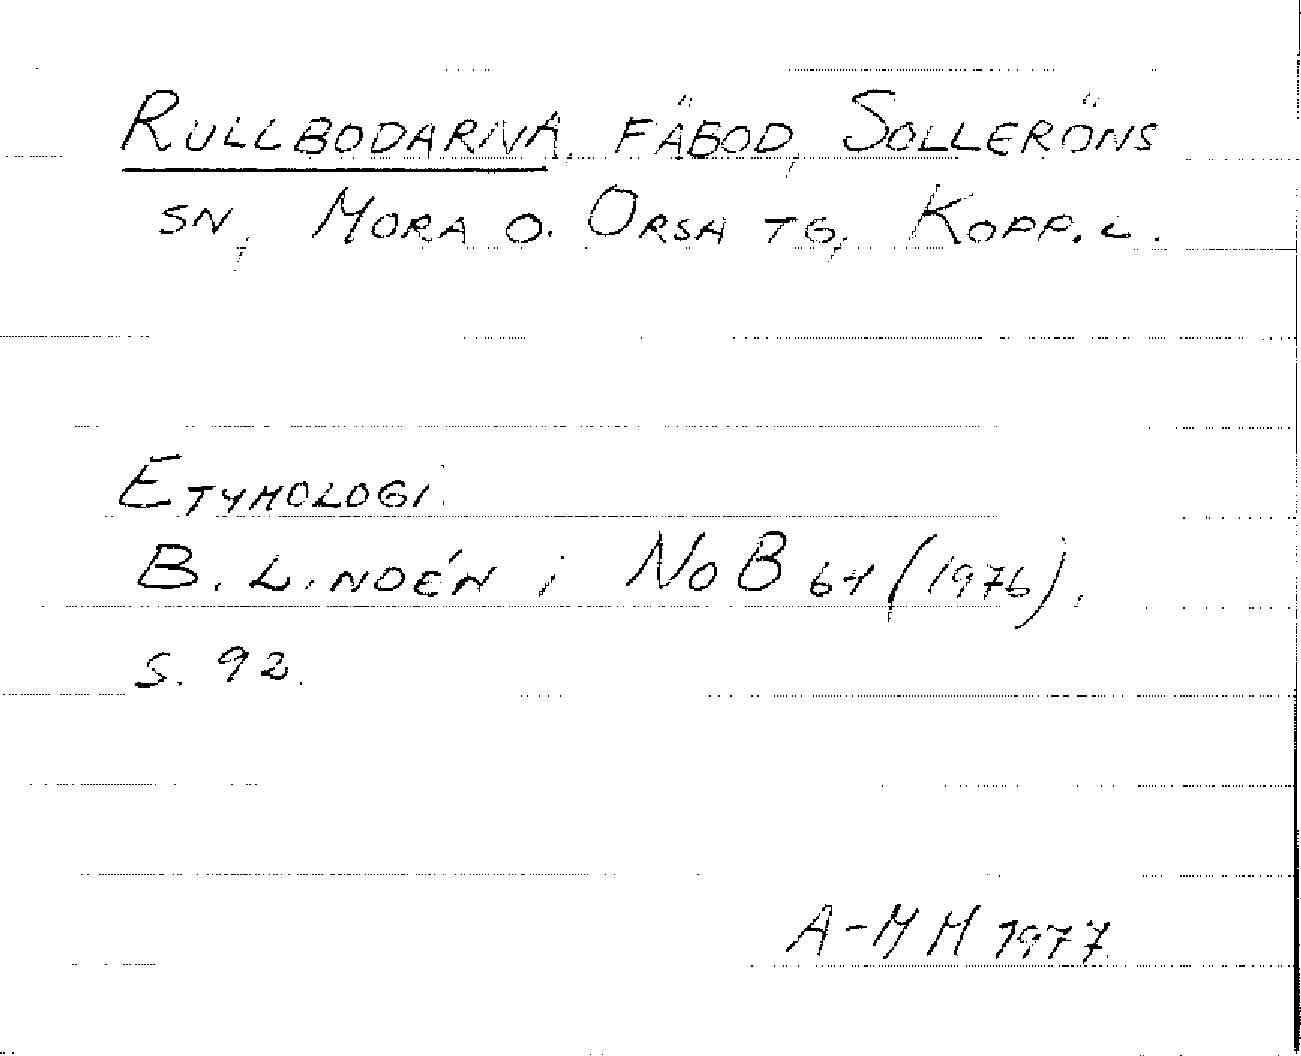 RULLBODARNA, FÄBOD, SOLLERÖNS
SN, MORA O. ORSA TG, KOPP. L.
ETYMOLOGI:
B. LINDÉN i NoB 64 (1976),
S. 92.
A-MH 1977